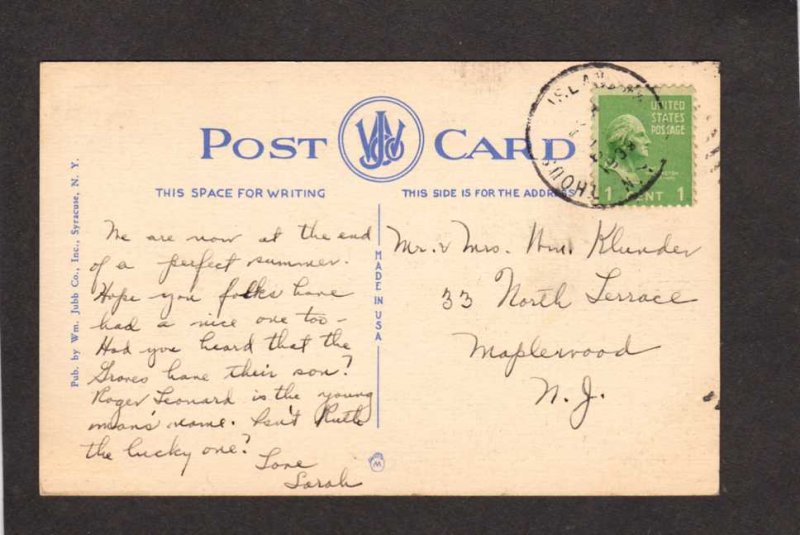 POST CARD
THIS SPACE FOR WRITING
THIS SIDE IS FOR THE ADDRESS
UNITED
STATES
POSTAGE
1 CENT 1
We are now at the end
of a perfect summer.
Hope you folks have
had a nice one too —
Had you heard that the
Groves have their son?
Roger Leonard is the young
man's name. Isn't Ruth
the lucky one?
Love
Sarah
Mr. & Mrs. Wm. Klunder
33 North Terrace
Maplewood
N. J.
MADE IN USA
Pub. by Wm. Jubb Co., Inc., Syracuse, N. Y.